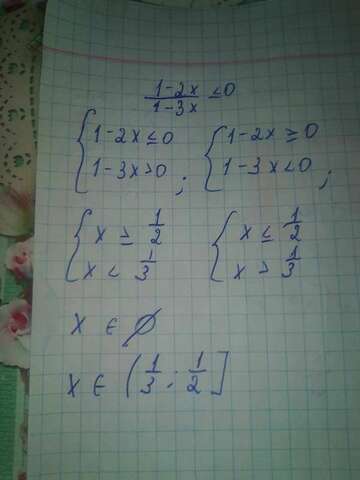 (1-2x)/(1-3x) ≤0
{1-2x≤0 {1-2x≥0
{1-3x>0; {1-3x<0;
{x ≥ 1/2 {x ≤ 1/2
{x < 1/3 {x > 1/3
x ∈ ∅
x ∈ (1/3; 1/2]